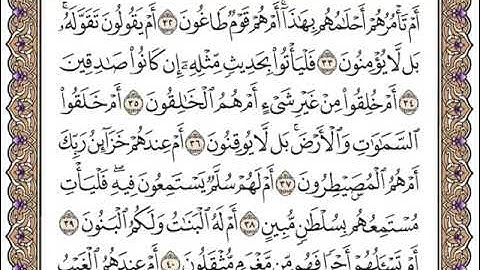 أَمْ تَأْمُرُهُمْ أَحْلَٰمُهُم بِهَٰذَآ ۚ أَمْ هُمْ قَوْمٌ طَاغُونَ ٣٢ أَمْ يَقُولُونَ تَقَوَّلَهُۥ ۚ
بَل لَّا يُؤْمِنُونَ ٣٣ فَلْيَأْتُوا۟ بِحَدِيثٍ مِّثْلِهِۦٓ إِن كَانُوا۟ صَٰدِقِينَ
٣٤ أَمْ خُلِقُوا۟ مِنْ غَيْرِ شَىْءٍ أَمْ هُمُ ٱلْخَٰلِقُونَ ٣٥ أَمْ خَلَقُوا۟
ٱلسَّمَٰوَٰتِ وَٱلْأَرْضَ ۚ بَل لَّا يُوقِنُونَ ٣٦ أَمْ عِندَهُمْ خَزَآئِنُ رَبِّكَ
أَمْ هُمُ ٱلْمُصَۣيْطِرُونَ ٣٧ أَمْ لَهُمْ سُلَّمٌ يَسْتَمِعُونَ فِيهِ ۖ فَلْيَأْتِ
مُسْتَمِعُهُم بِسُلْطَٰنٍ مُّبِينٍ ٣٨ أَمْ لَهُ ٱلْبَنَٰتُ وَلَكُمُ ٱلْبَنُونَ ٣٩
أَمْ تَسْـَٔلُهُمْ أَجْرًا فَهُم مِّن مَّغْرَمٍ مُّثْقَلُونَ ٤٠ أَمْ عِندَهُمُ ٱلْغَيْبُ